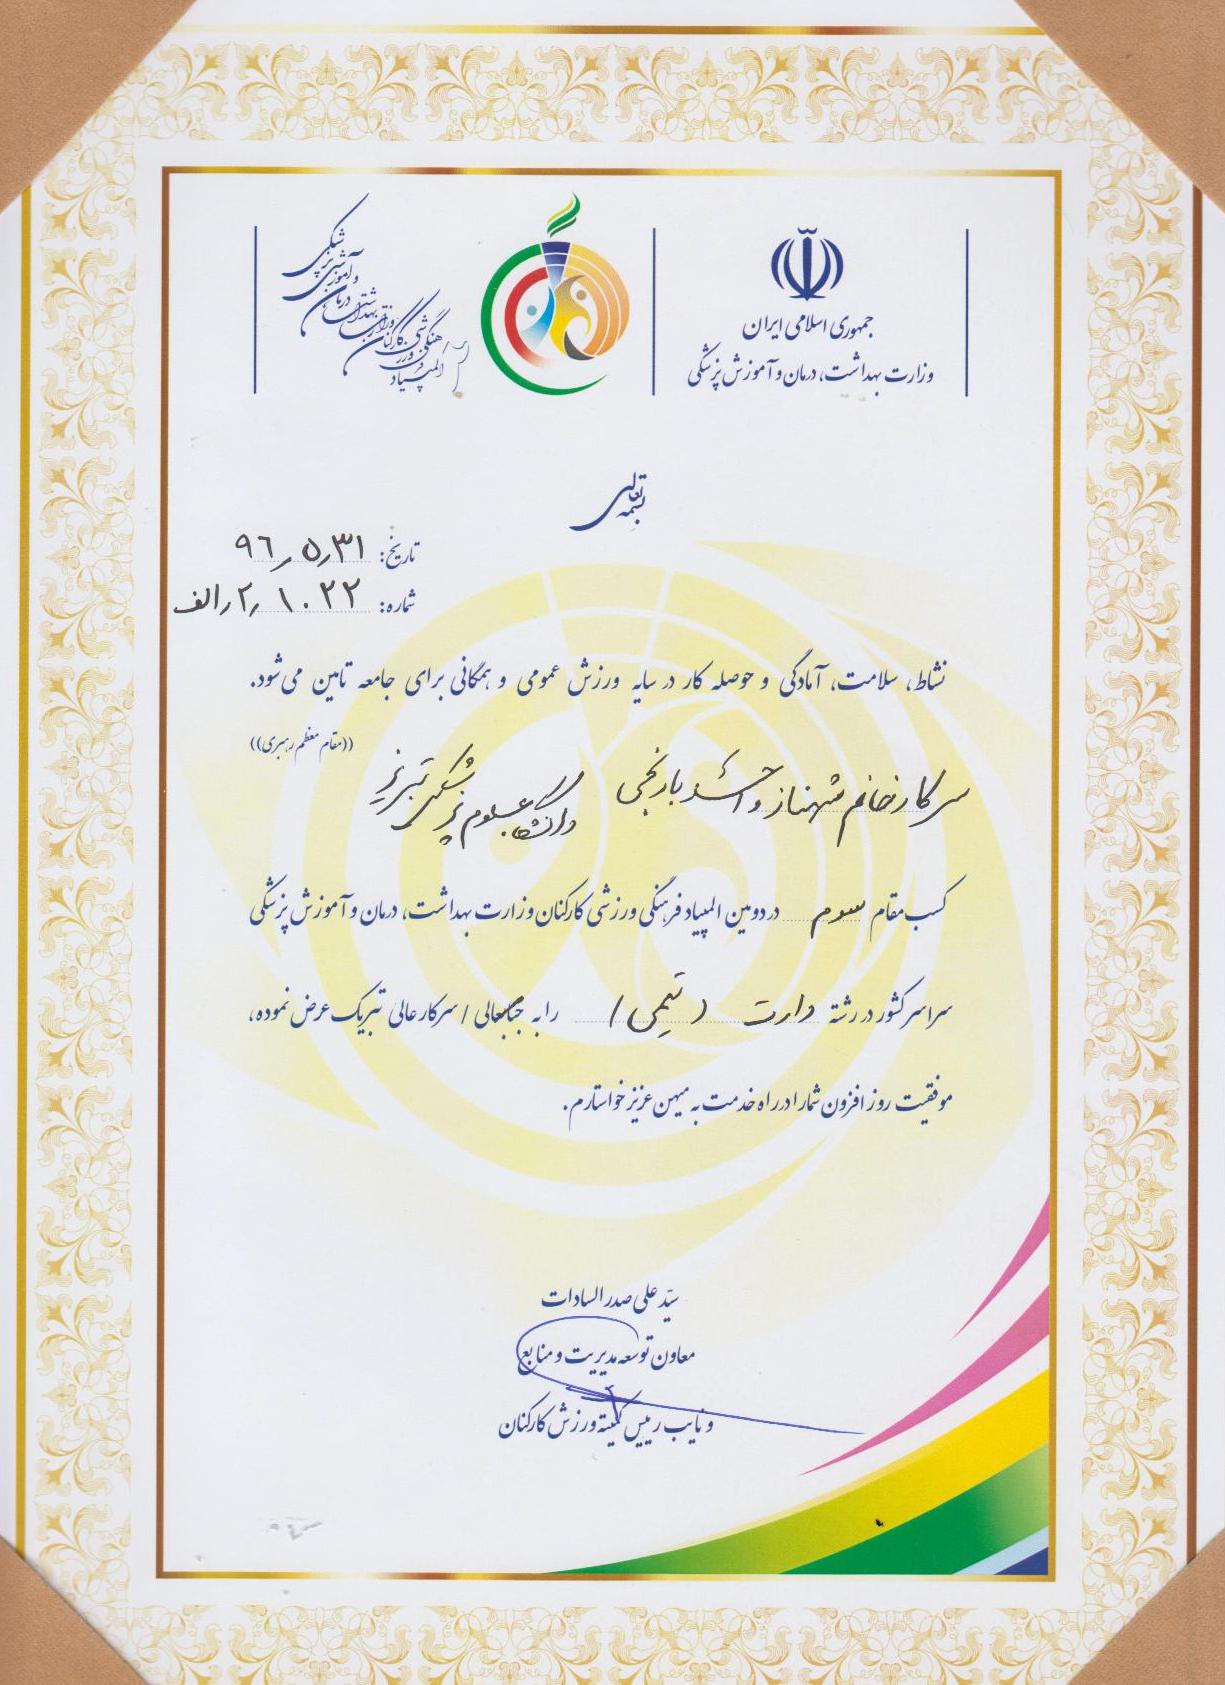 جمهوری اسلامی ایران
وزارت بهداشت، درمان و آموزش پزشکی
المپیاد فرهنگی ورزشی کارکنان وزارت بهداشت، درمان و آموزش پزشکی
بسمه تعالی
تاریخ: ۹۶٫۵٫۳۱
شماره: ۱۰۲۲٫۲٫الف
نشاط، سلامت، آمادگی و حوصله کار در سایه ورزش عمومی و همگانی برای جامعه تامین می‌شود.
((مقام معظم رهبری))
سرکار خانم شهناز بارنجی دانشگاه علوم پزشکی تبریز
کسب مقام سوم در دومین المپیاد فرهنگی ورزشی کارکنان وزارت بهداشت، درمان و آموزش پزشکی
سراسر کشور در رشته دارت (تیمی) را به جنابعالی / سرکار عالی تبریک عرض نموده،
موفقیت روز افزون شما را در راه خدمت به میهن عزیز خواستارم.
سیّد علی صدرالسادات
معاون توسعه مدیریت و منابع
و نایب رییس کمیته ورزش کارکنان